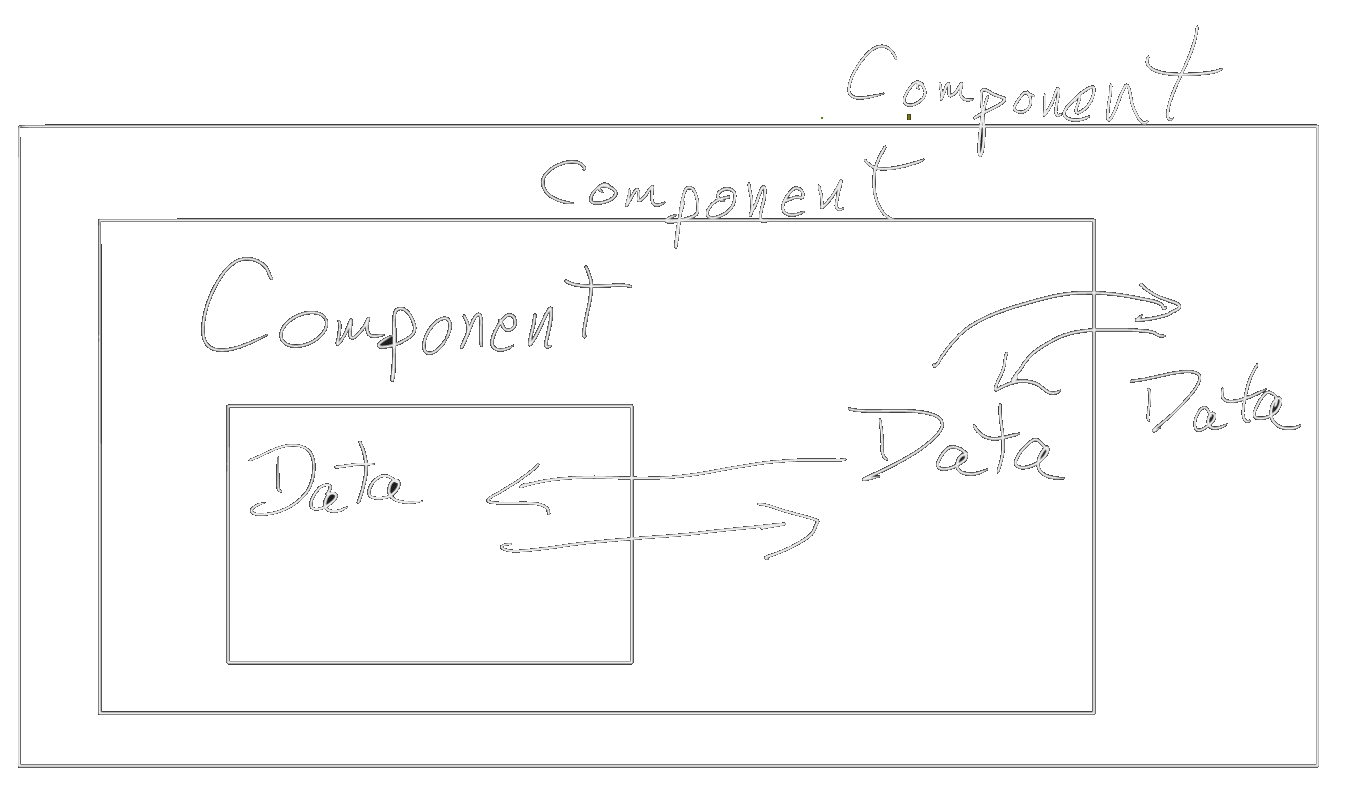 Component
Component
Component
Data
Data
Data